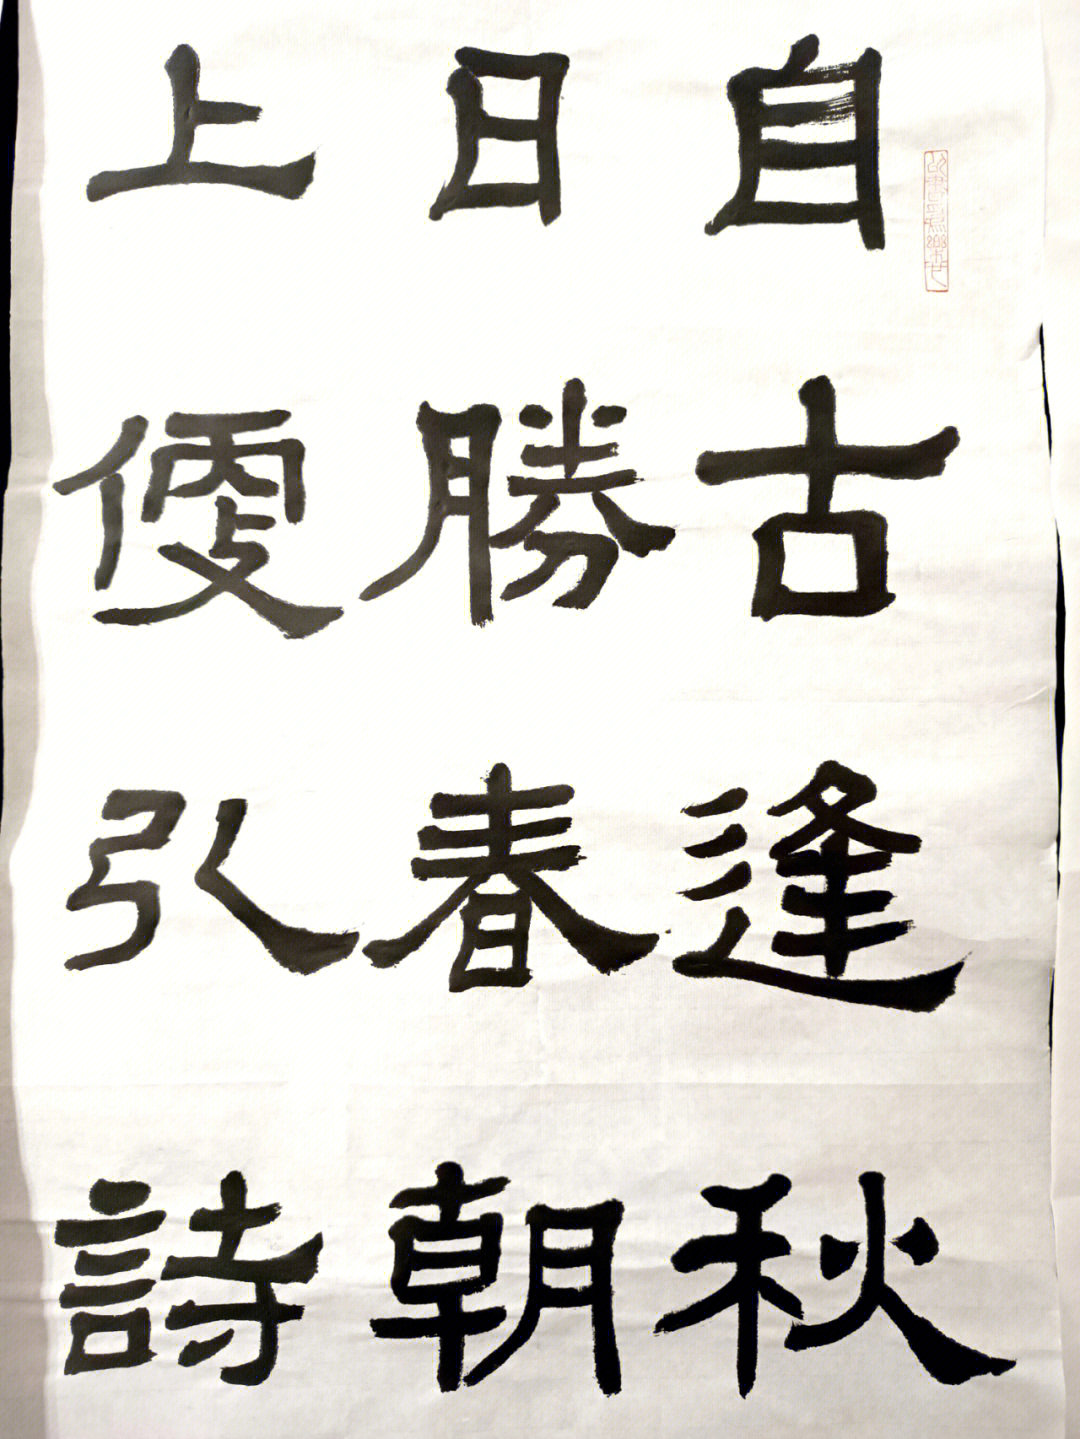 自古逢秋
日勝春朝
上便引詩